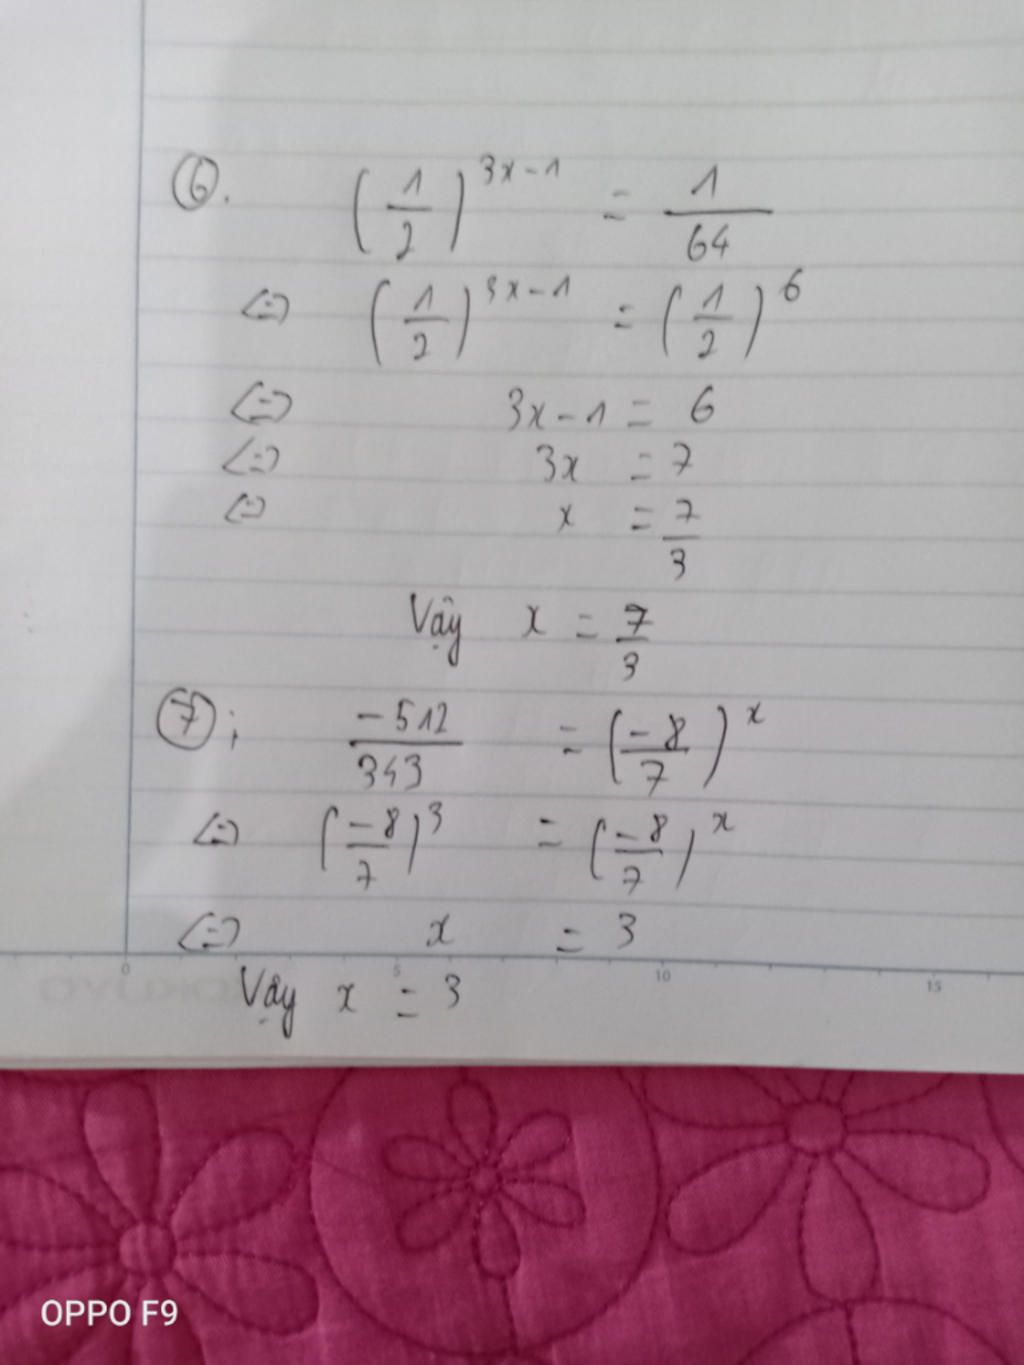 6. (1/2)^(3x-1) = 1/64
<=> (1/2)^(3x-1) = (1/2)^6
<=> 3x-1 = 6
<=> 3x = 7
<=> x = 7/3
Vậy x = 7/3
7; -512/343 = (-8/7)^x
<=> (-8/7)^3 = (-8/7)^x
<=> x = 3
0 5 10 15
Vậy x = 3
OPPO F9